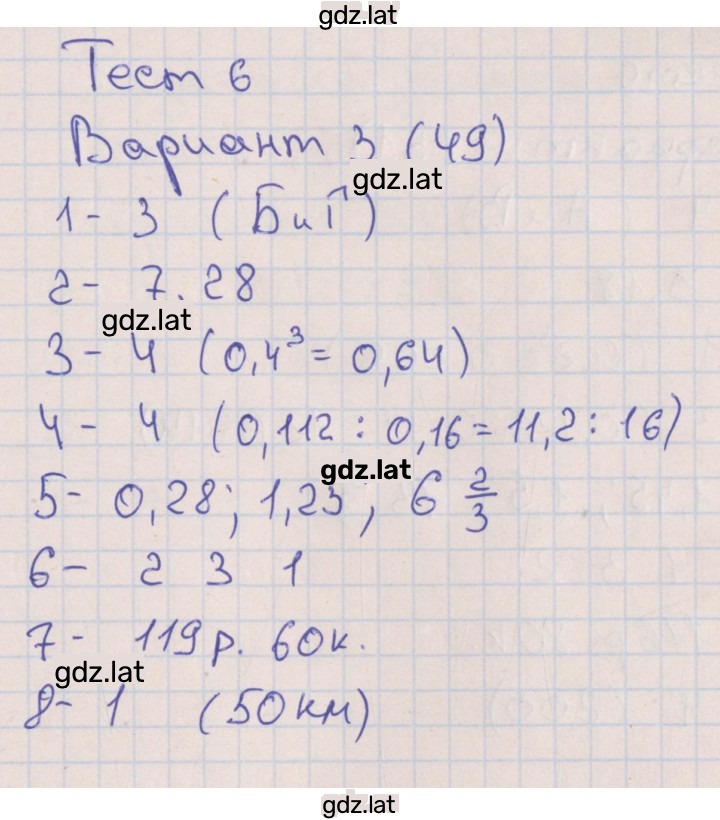 gdz.lat
Тест 6
Вариант 3 (49)
gdz.lat
1- 3 (Б и Г)
2- 7.28
gdz.lat
3- 4 (0,4³ = 0,64)
4- 4 (0,112 : 0,16 = 11,2 : 16)
gdz.lat
5- 0,28; 1,23; 6 2/3
6- 2 3 1
7- 119 р. 60 к.
gdz.lat
8- 1 (50 км)
gdz.lat